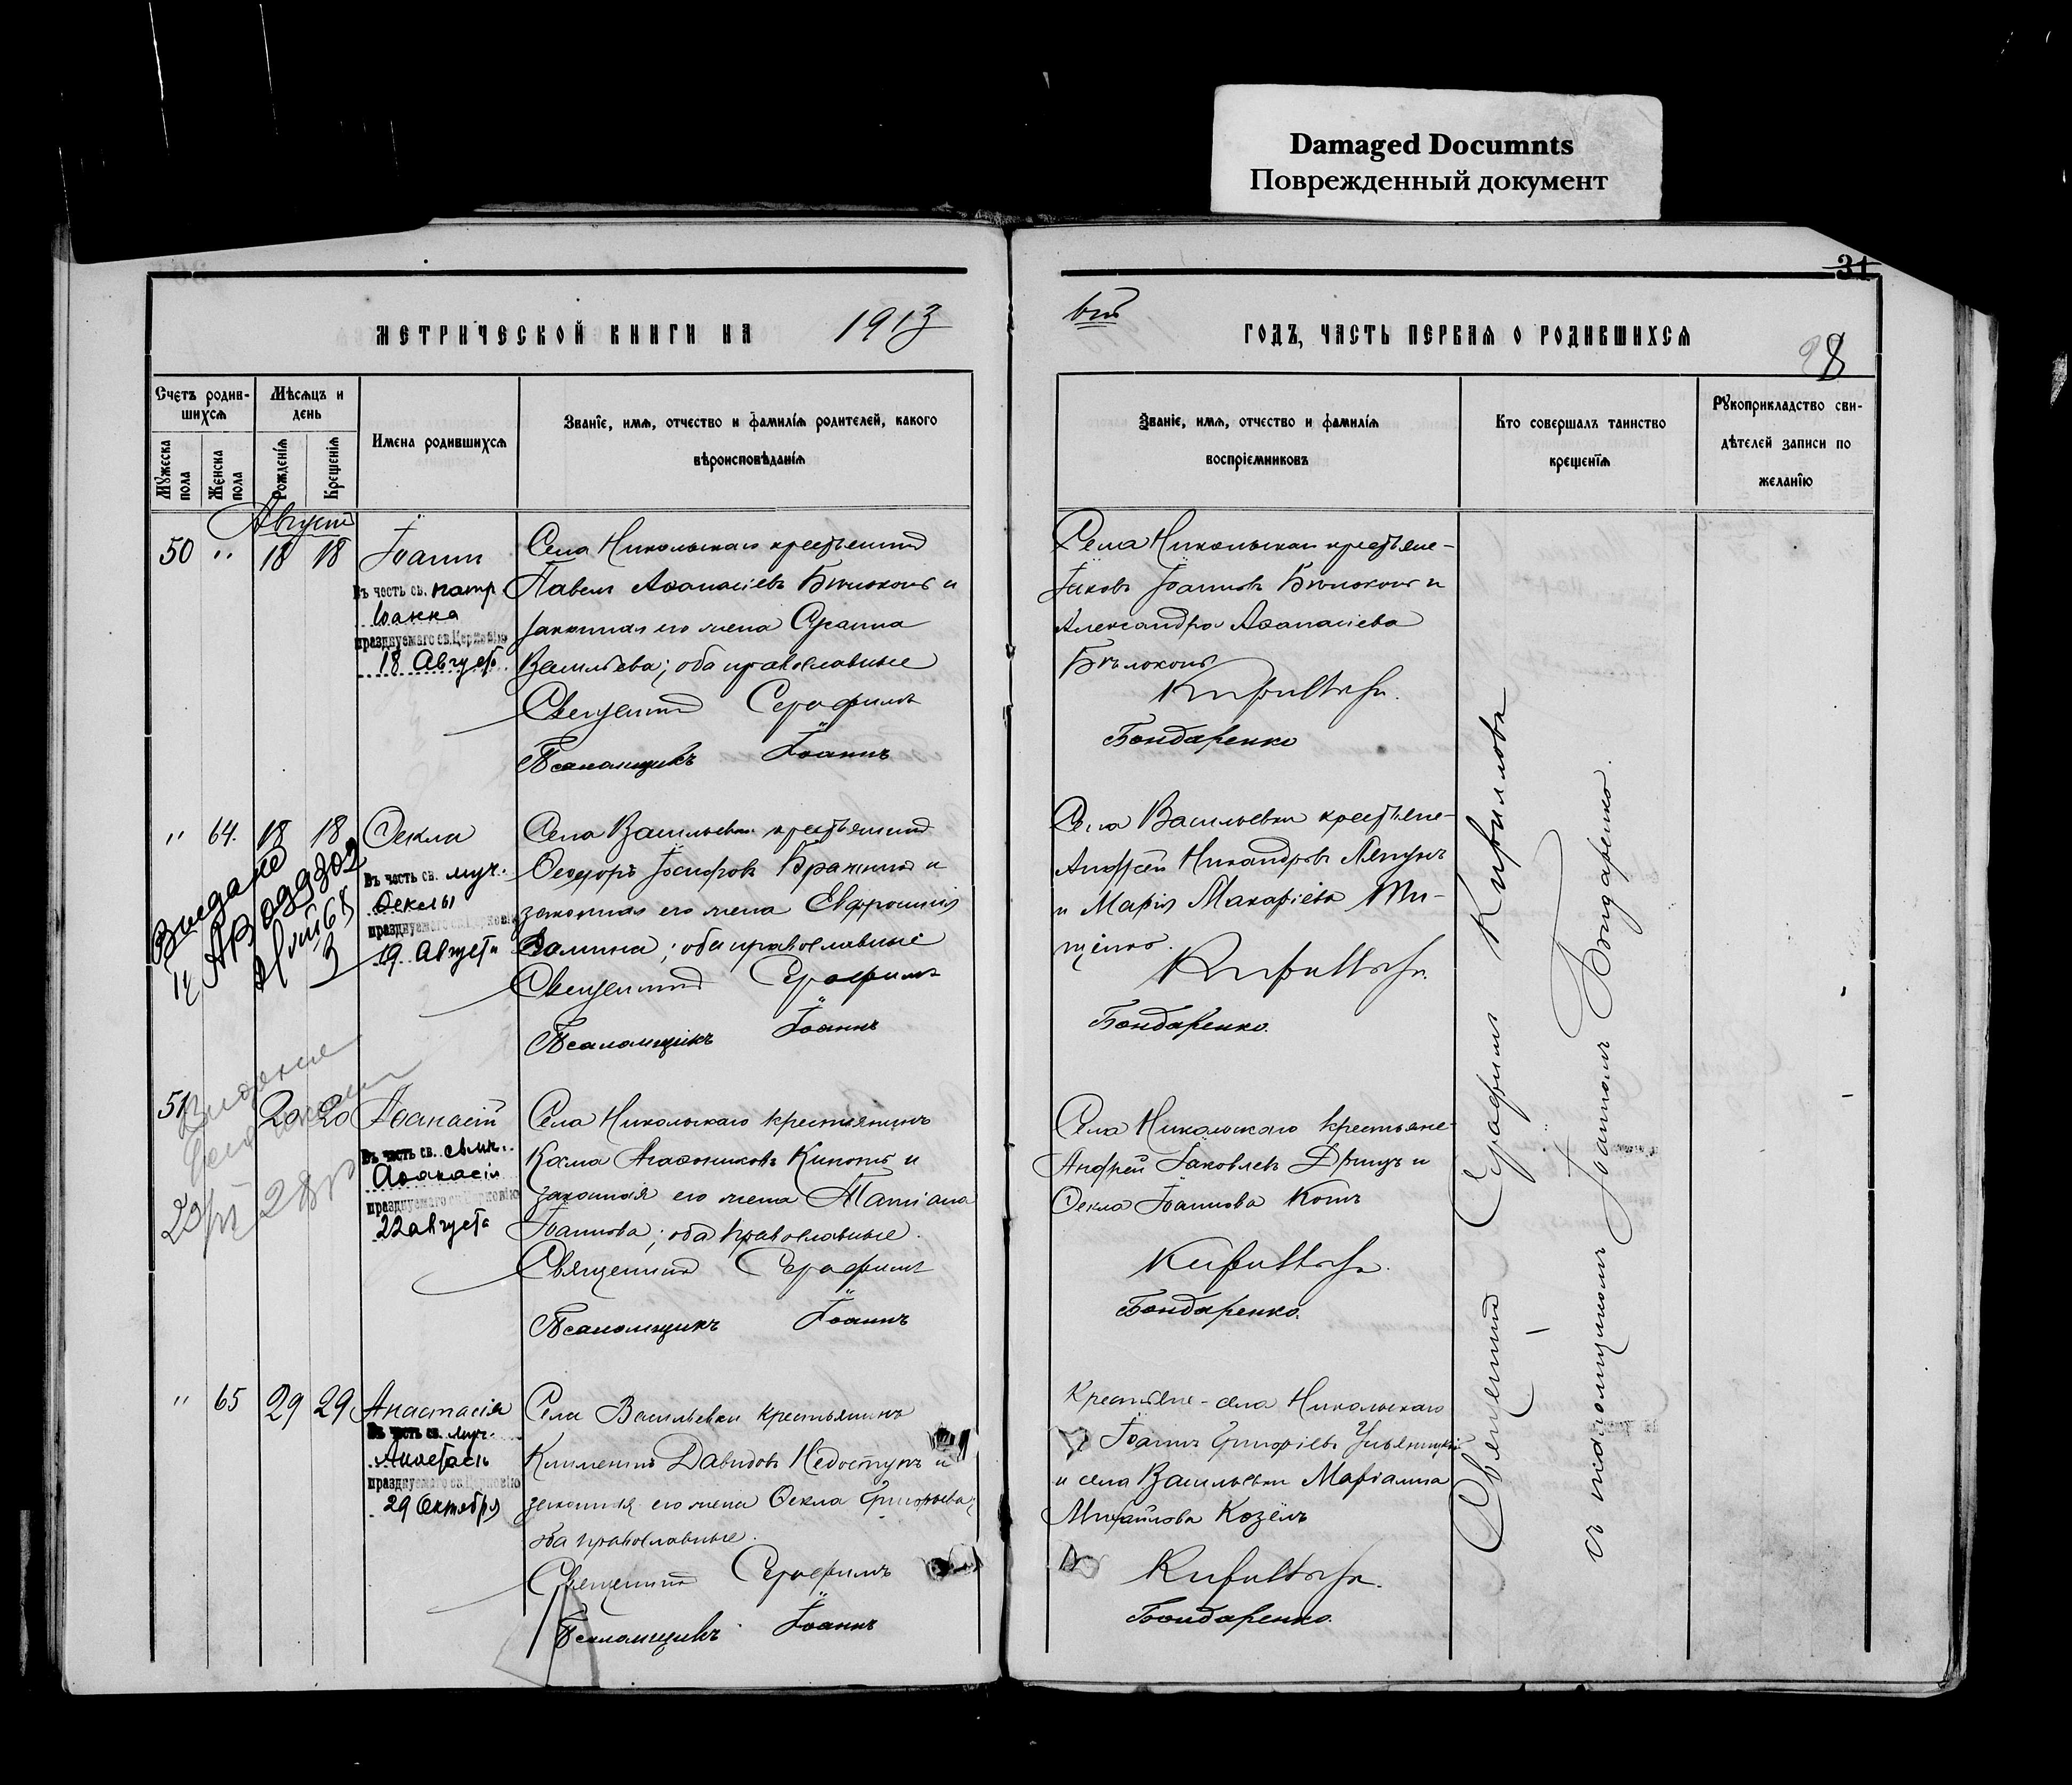 Damaged Documnts
Поврежденный документ
31
МЕТРИЧЕСКОЙ КНИГИ НА 1913
ГОДЪ, ЧАСТЬ ПЕРВАЯ О РОДИВШИХСЯ
8
Счетъ родив-
шихся
Мужеска пола
Женска пола
Мѣсяцъ и
день
Рожденія
Крещенія
Имена родившихся
Званіе, имя, отчество и фамилія родителей, какого
вѣроисповѣданія
Званіе, имя, отчество и фамилія
воспріемниковъ
Кто совершалъ таинство
крещенія
Рукоприкладство сви-
дѣтелей записи по
желанію
Августъ
50 " 18 18 Іоаннъ
Въ честь св. патр.
Іоанна
празднуемаго св. Церковію
18 Августа
Села Никольскаго крестьянинъ
Павелъ Аѳанасіевъ Бѣлоконь и
законная его жена
Васильева; оба православные
Священникъ Серафимъ
Псаломщикъ Іоаннъ
Села Никольскаго крестьяне-
Іаковъ Іоанновъ Бѣлоконь и
Александра Аѳанасіева
Бѣлоконь
Кириллов
Бондаренко
" 64. 18 18 Ѳекла
Въ честь св. муч.
Ѳеклы
празднуемаго св. Церковію
19 Августа
Села Васильевки крестьянинъ
Ѳеодоръ Іосифовъ и
законная его жена Евфросинія
; оба православные
Священникъ Серафимъ
Псаломщикъ Іоаннъ
Села Васильевки крестьяне-
Андрей Никандровъ
и Марія Макаріева Ти-
щенко.
Кириллов
Бондаренко.
51 20 20 Аѳанасій
Въ честь св. свмч.
Аѳанасія
празднуемаго св. Церковію
22 августа
Села Никольскаго крестьянинъ
Косма Агаѳониковъ и
законная его жена Татіана
Іоаннова; оба православные.
Священникъ Серафимъ
Псаломщикъ Іоаннъ
Села Никольскаго крестьяне-
Андрей Іаковлевъ и
Ѳекла Іоаннова Котъ
Кириллов
Бондаренко.
" 65 29 29 Анастасія
Въ честь св. муч.
Анастасіи
празднуемаго св. Церковію
29 Октября
Села Васильевки крестьянинъ
Климентъ Давидовъ Недоступъ и
законная его жена Ѳекла Григорьева;
оба православные.
Священникъ Серафимъ
Псаломщикъ Іоаннъ
Крестьяне - села Никольскаго
Іоаннъ Григоріевъ
и села Васильевки Маріанна
Михайлова Козелъ
Кириллов
Бондаренко.
Священникъ Серафимъ Кирилловъ
съ псаломщикомъ Іоанномъ Бондаренко.